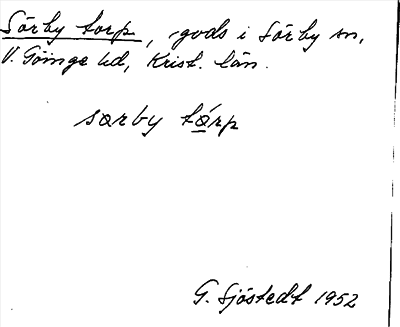 Sörby torp, gods i Sörby sn,
V. Göinge hd, Krist. län.
sœrby tǻrp
G. Sjöstedt 1952